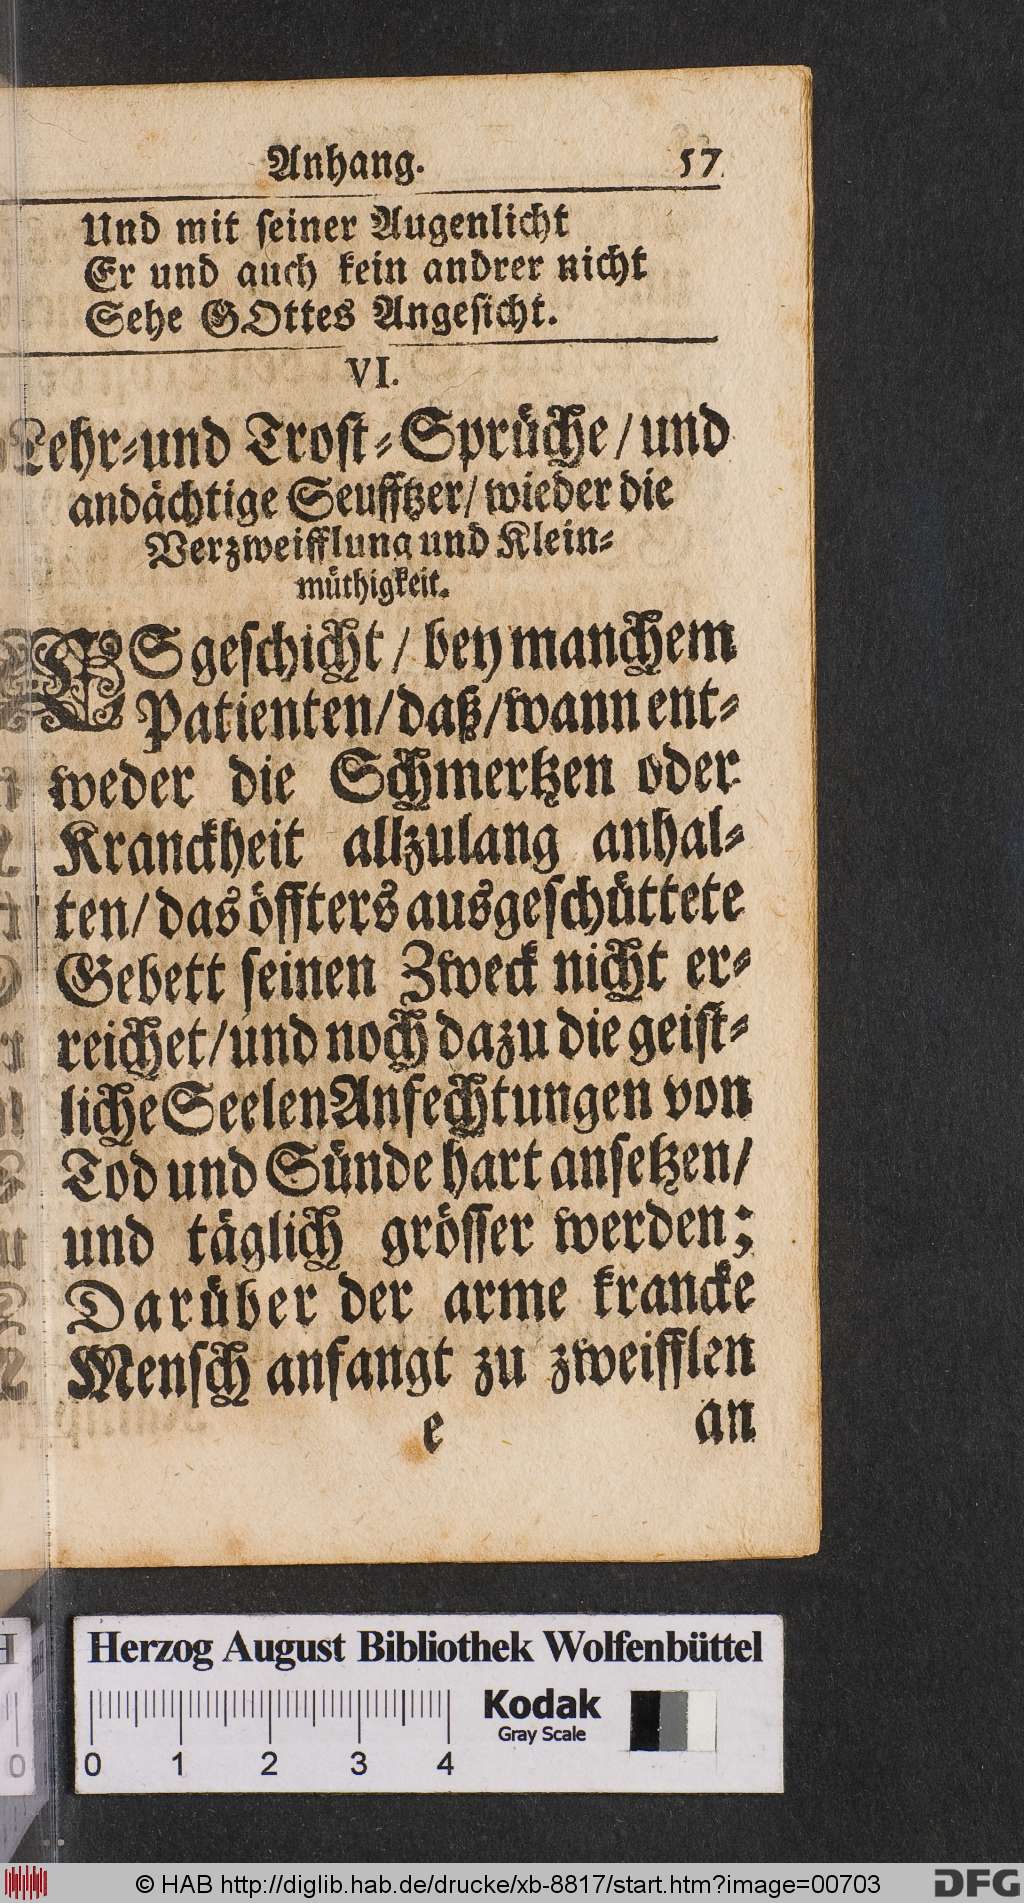 Anhang. 57
Und mit seiner Augenlicht
Er und auch kein andrer nicht
Sehe GOttes Angesicht.
VI.
Lehr-und Trost-Sprüche / und
andächtige Seufftzer/ wieder die
Verzweifflung und Klein-
müthigkeit.
ES geschicht / bey manchem
Patienten/ daß/ wann ent-
weder die Schmertzen oder
Kranckheit allzulang anhal-
ten/ das öffters ausgeschüttete
Gebett seinen Zweck nicht er-
reichet/ und noch dazu die geist-
liche Seelen Anfechtungen von
Tod und Sünde hart ansetzen/
und täglich grösser werden;
Darüber der arme krancke
Mensch anfangt zu zweifflen
e an
Herzog August Bibliothek Wolfenbüttel
Kodak
Gray Scale
0 1 2 3 4
© HAB http://diglib.hab.de/drucke/xb-8817/start.htm?image=00703
DFG